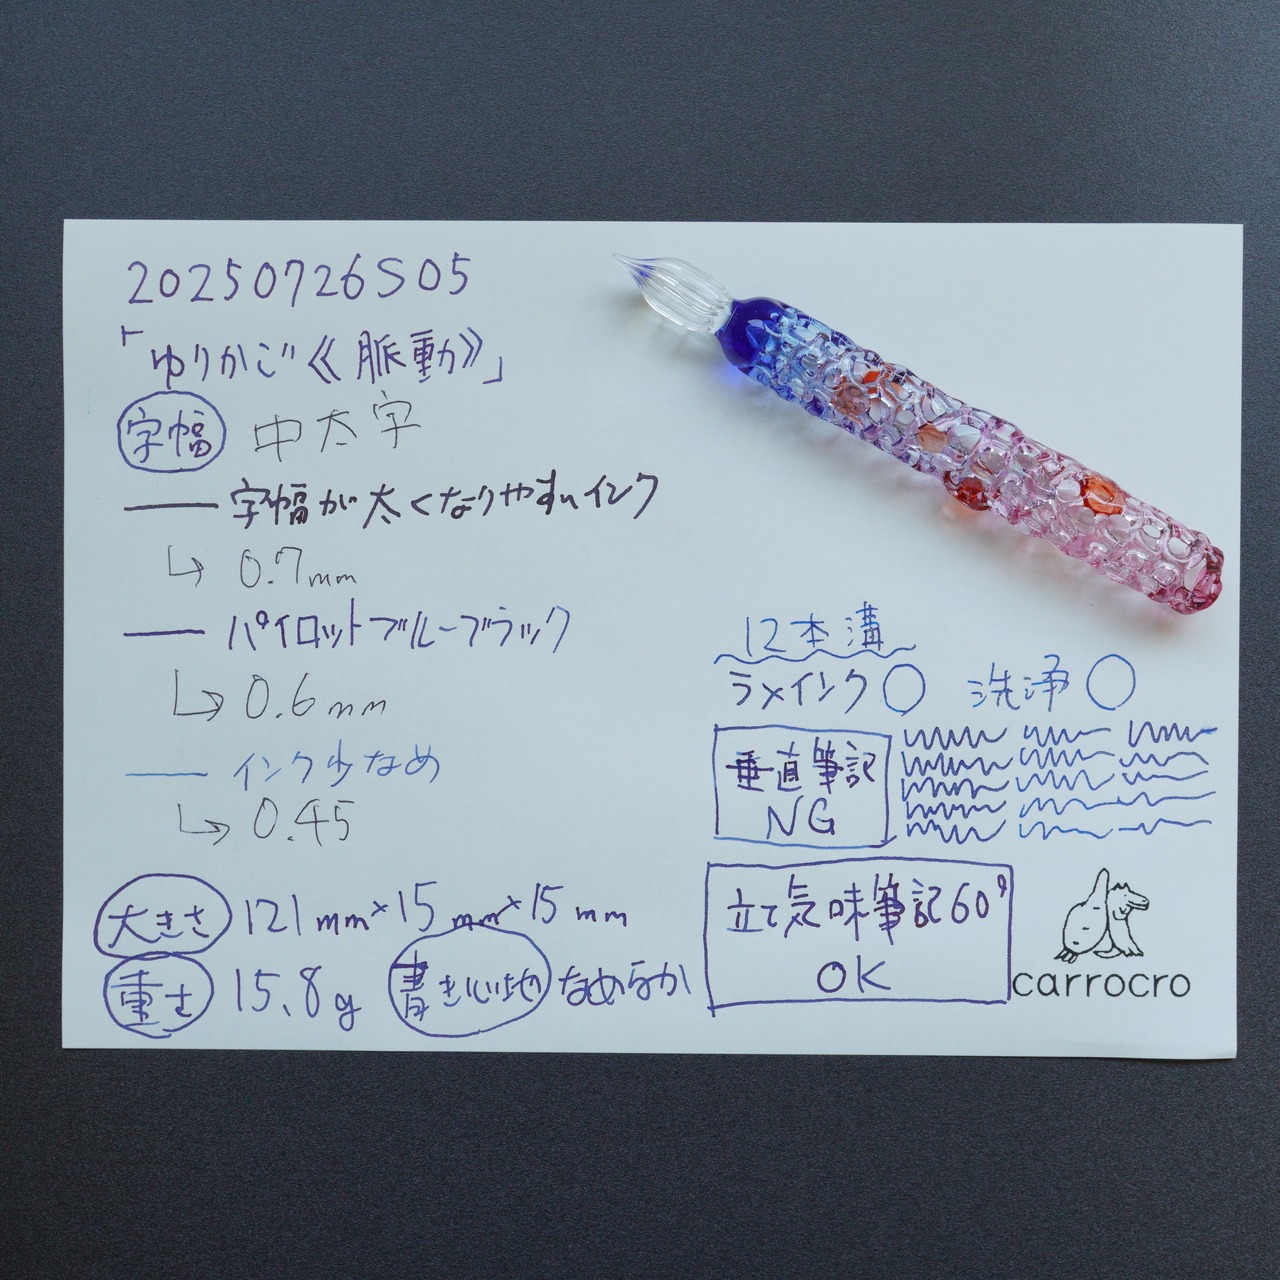 20250726S05
「ゆりかご《脈動》」
字幅 中太字
字幅が太くなりやすいインク
↳ 0.7mm
パイロットブルーブラック
↳ 0.6mm
インク少なめ
↳ 0.45
大きさ 121mm×15mm×15mm
重さ 15.8g 書き心地 なめらか
12本溝
ラメインク○ 洗浄○
垂直筆記
NG
立て気味筆記60°
OK
carrocro